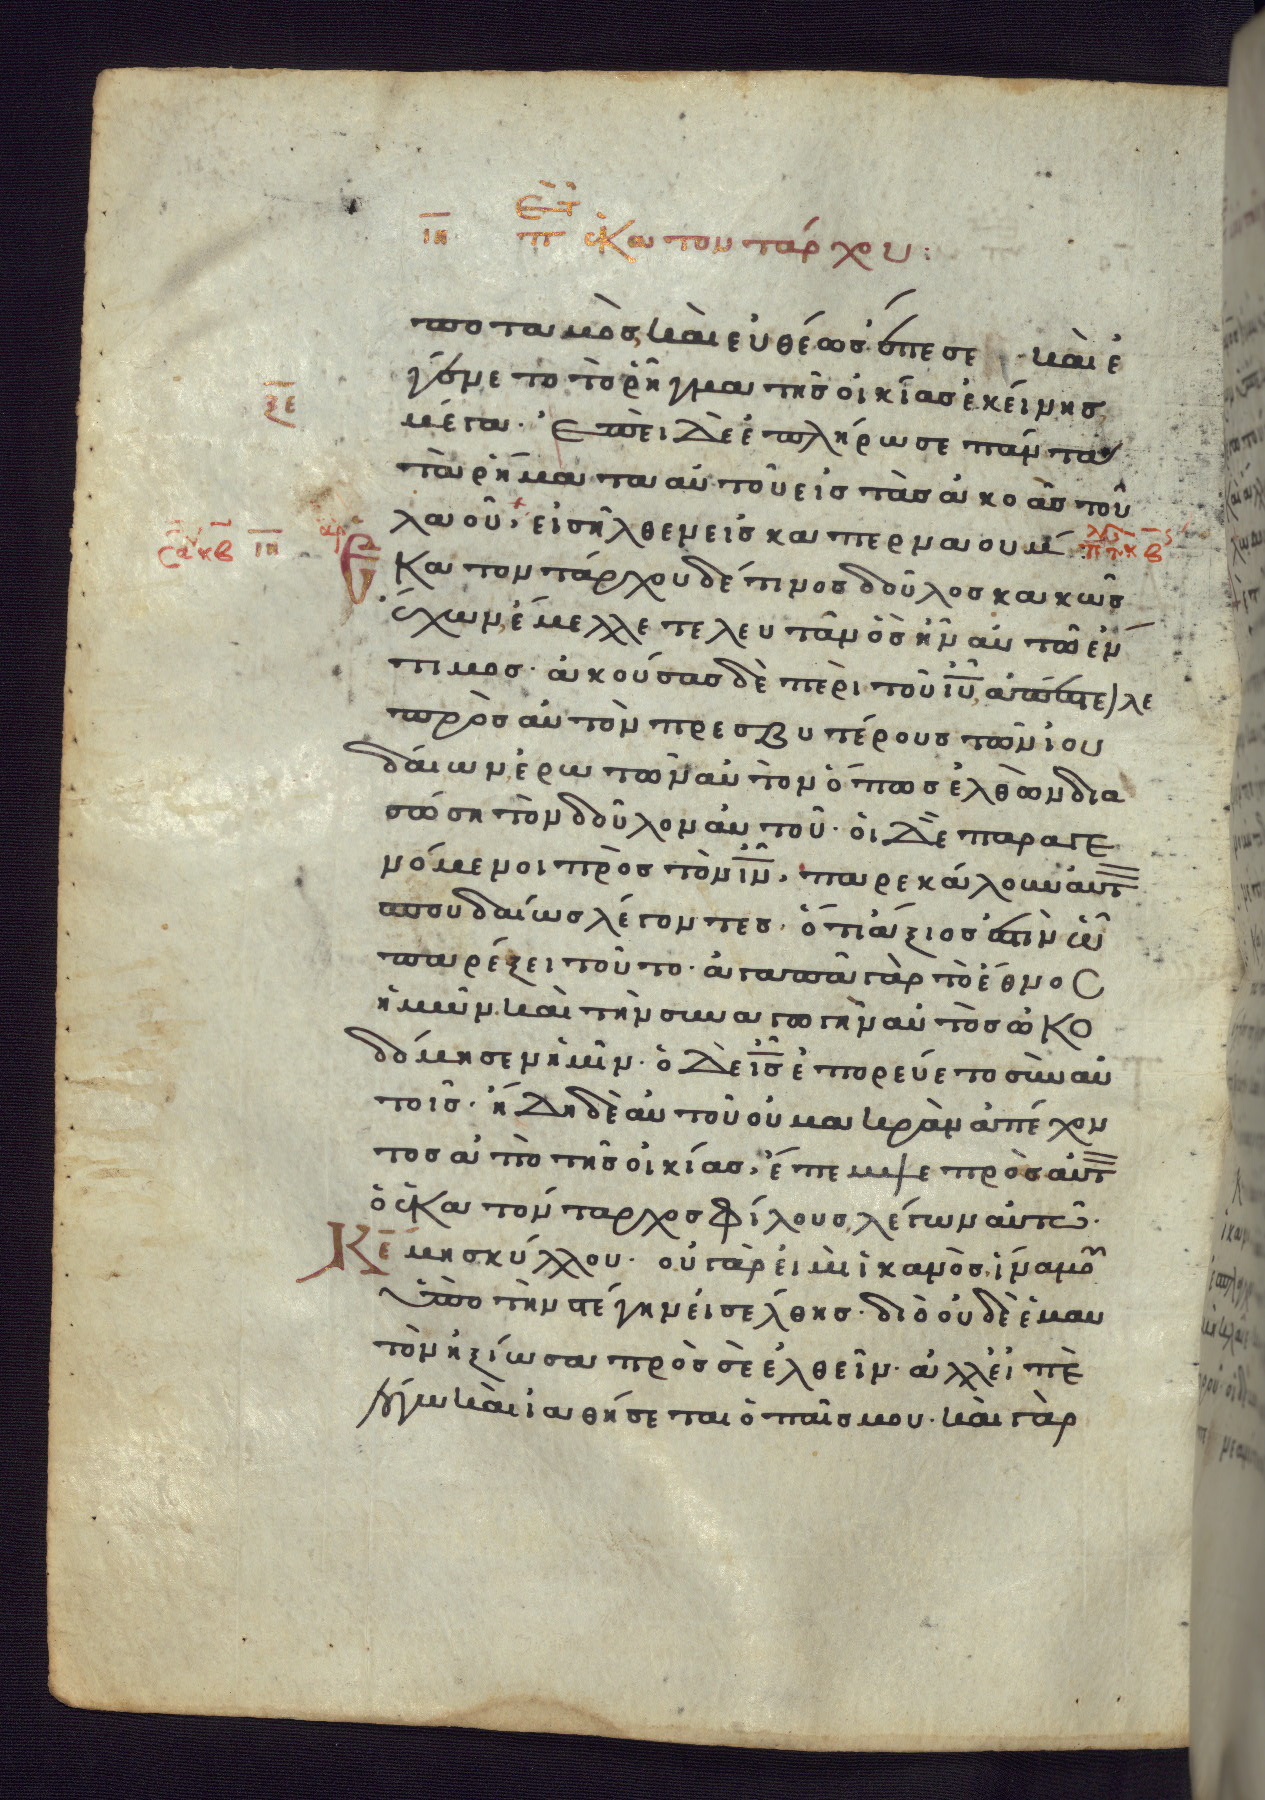 ιη π εκατοντάρχου:
ποταμὸς, καὶ εὐθέως ἔπεσε· καὶ ἐ
γένετο τὸ ῥῆγμα τῆς οἰκίας ἐκείνης
ξε
μέγα· Ἐπεὶ δὲ ἐπλήρωσε πάντα
τὰ ῥήματα αὐτοῦ εἰς τὰς ἀκοὰς τοῦ
λαοῦ, εἰσῆλθεν εἰς καπερναούμ·
ιη
Ἑκατοντάρχου δέ τινος δοῦλος κακῶς
ἔχων, ἔμελλε τελευτᾶν ὃς ἦν αὐτῶ ἔν
τιμος· ἀκούσας δὲ περὶ τοῦ ιυ, ἀπέστειλε
πρὸς αὐτὸν πρεσβυτέρους τῶν ἰου
δαίων ἐρωτῶν αὐτὸν ὅπως ἐλθὼν δια
σώση τὸν δοῦλον αὐτοῦ· οἱ δὲ παραγε
νόμενοι πρὸς τὸν ιν, παρεκάλουν αὐτ
σπουδαίως λέγοντες· ὅτι ἄξιός ἐστιν ὧ
παρέξει τοῦτο· ἀγαπᾶ γὰρ τὸ ἔθνος
ἡμῶν καὶ τὴν συναγωγὴν αὐτὸς ὠκο
δόμησεν ἡμῖν· ὁ δὲ ις ἐπορεύετο σὺν αὐ
τοῖς· ἤδη δὲ αὐτοῦ οὐ μακρὰν ἀπέχον
τος ἀπὸ τῆς οἰκίας, ἔπεμψε πρὸς αὐτ
ὁ ἑκατόνταρχος φίλους, λέγων αὐτῶ·
Κε μὴ σκύλλου· οὐ γάρ εἰμι ἱκανὸς, ἵνα μου
ὑπὸ τὴν στέγην εἰσέλθης· διὸ οὐδὲ ἐμαυ
τὸν ἠξίωσα πρὸς σὲ ἐλθεῖν· ἀλλ εἰπὲ
λόγω καὶ ἰαθήσεται ὁ παῖς μου· καὶ γὰρ